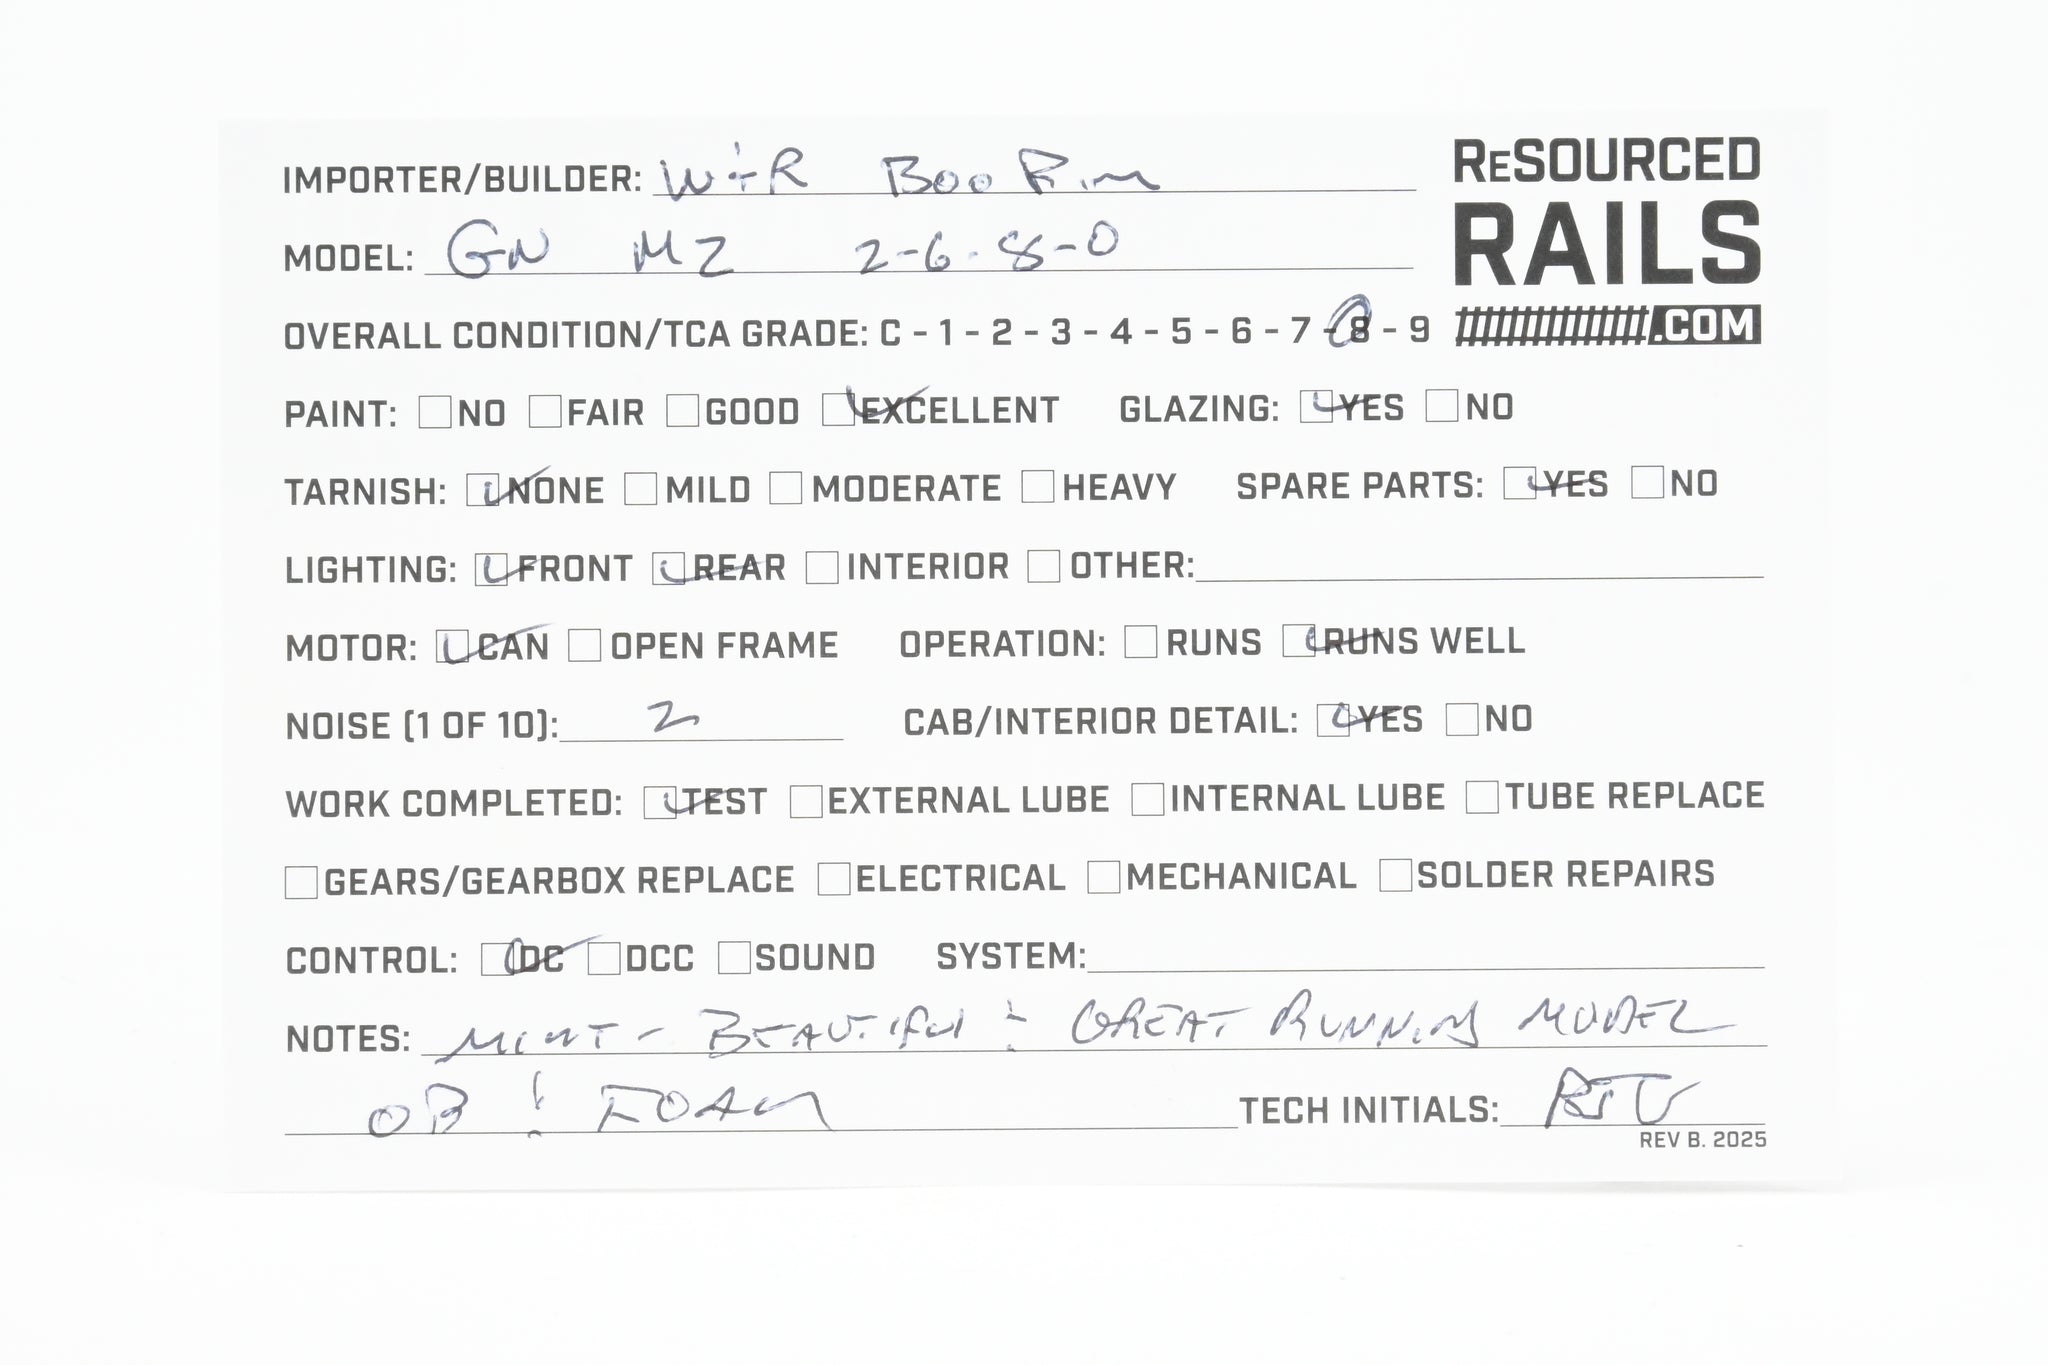 IMPORTER/BUILDER: W+R Boo Rim
RESOURCED
RAILS
.COM
MODEL: GN M2 2-6-8-0
OVERALL CONDITION/TCA GRADE: C - 1 - 2 - 3 - 4 - 5 - 6 - 7 - 8 - 9
PAINT: NO FAIR GOOD EXCELLENT GLAZING: YES NO
TARNISH: NONE MILD MODERATE HEAVY SPARE PARTS: YES NO
LIGHTING: FRONT REAR INTERIOR OTHER:
MOTOR: CAN OPEN FRAME OPERATION: RUNS RUNS WELL
NOISE (1 OF 10): 2 CAB/INTERIOR DETAIL: YES NO
WORK COMPLETED: TEST EXTERNAL LUBE INTERNAL LUBE TUBE REPLACE
GEARS/GEARBOX REPLACE ELECTRICAL MECHANICAL SOLDER REPAIRS
CONTROL: DC DCC SOUND SYSTEM:
NOTES: MINT - BEAUTIFUL & GREAT RUNNING MODEL
OB & FOAM TECH INITIALS:
REV B. 2025